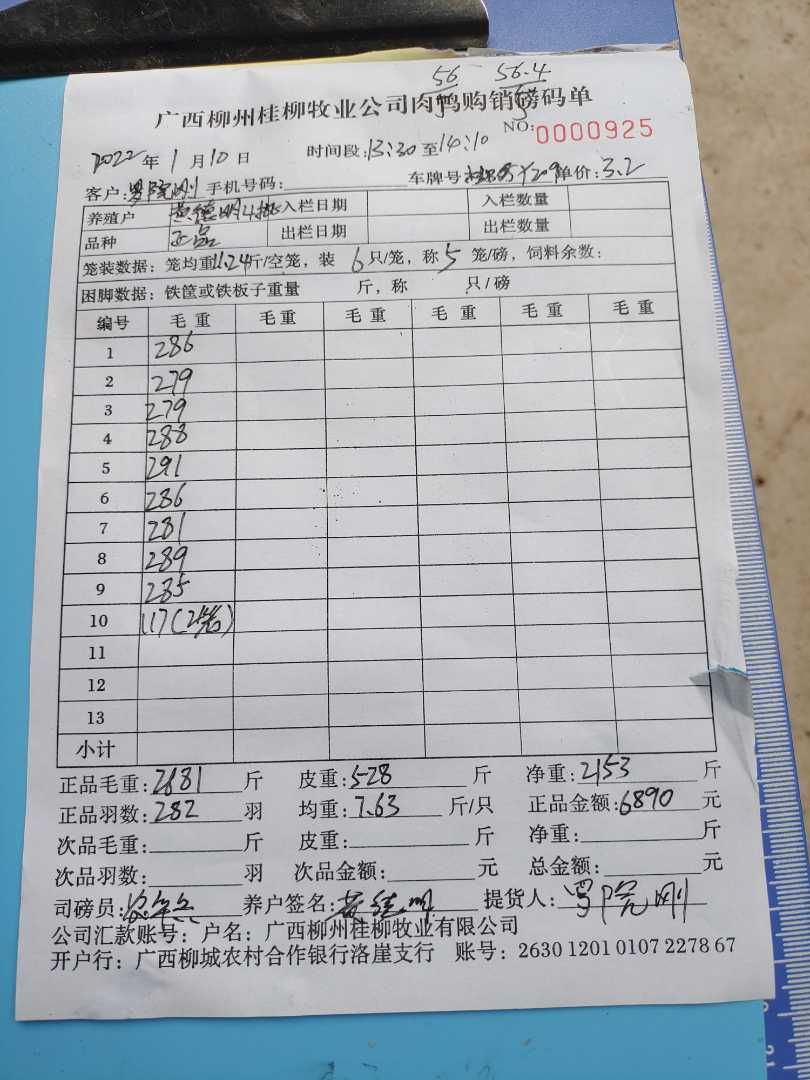 56 56.4
5 5
广西柳州桂柳牧业公司肉鸭购销磅码单
NO: 0000925
2022年1月10日 时间段:13:30至14:10
客户: 手机号码: 车牌号 单价:3.2
养殖户 黄德明 入栏日期 入栏数量
品种 正品 出栏日期 出栏数量
笼装数据：笼均重11.24斤/空笼，装6只/笼，称5笼/磅，饲料余数:
困脚数据：铁筐或铁板子重量 斤，称 只/磅
编号 毛重 毛重 毛重 毛重 毛重 毛重
1 286
2 279
3 279
4 288
5 291
6 286
7 281
8 289
9 285
10 117(2笼)
11
12
13
小计
正品毛重:2681斤 皮重:528斤 净重:2153斤
正品羽数:282羽 均重:7.63斤/只 正品金额:6890元
次品毛重: 斤 皮重: 斤 净重: 斤
次品羽数: 羽 次品金额: 元 总金额: 元
司磅员: 养户签名:黄德明 提货人:
公司汇款账号：户名：广西柳州桂柳牧业有限公司
开户行：广西柳城农村合作银行洛崖支行 账号：2630 1201 0107 2278 67